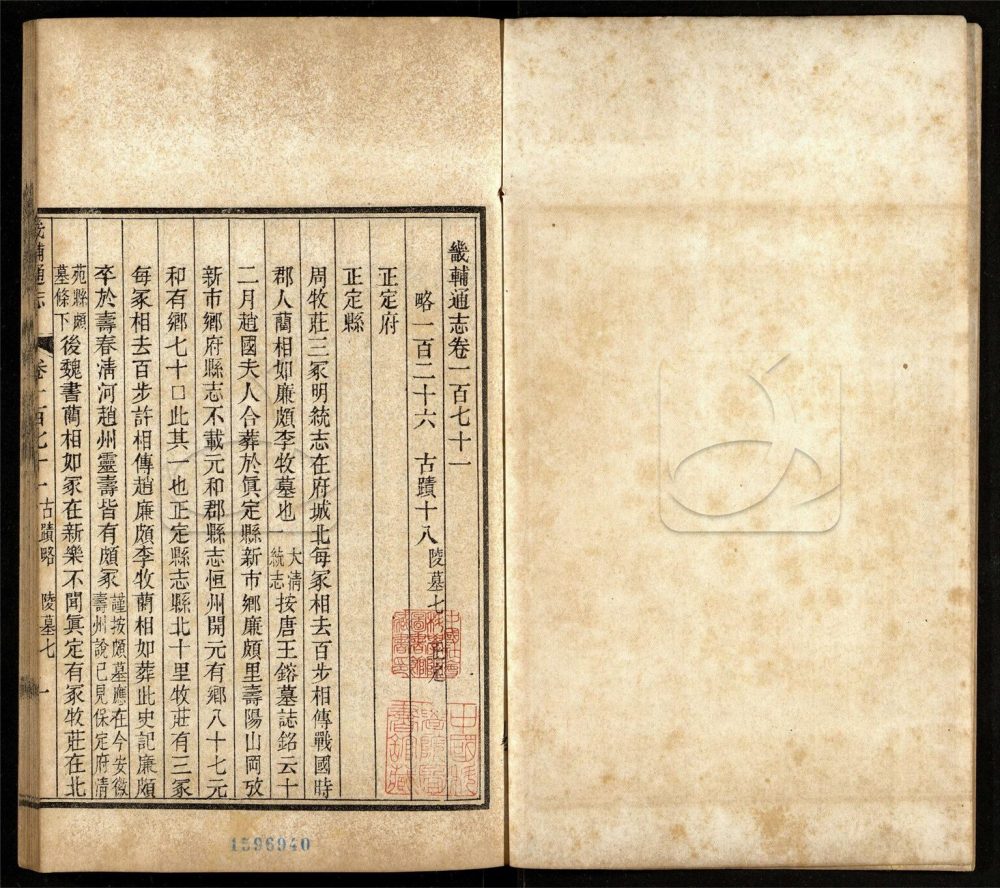 畿輔通志卷一百七十一
略一百二十六　古蹟十八　陵墓七
正定府
正定縣
周牧莊三冢明統志在府城北每冢相去百步相傳戰國時
郡人藺相如廉頗李牧墓也　大清統志　按唐王鎔墓誌銘云十
二月趙國夫人合葬於眞定縣新市鄉廉頗里壽陽山岡攷
新市鄉府縣志不載元和郡縣志恒州開元有鄉八十七元
和有鄉七十口此其一也正定縣志縣北十里牧莊有三冢
每冢相去百步許相傳趙廉頗李牧藺相如葬此史記廉頗
卒於壽春淸河趙州靈壽皆有頗冢　謹按頗墓應在今安徽壽州說已見保定府淸
苑縣頗墓條下　後魏書藺相如冢在新樂不聞眞定有冢牧莊在北
畿輔通志　卷一百七十一　古蹟略　陵墓七　一
1596940